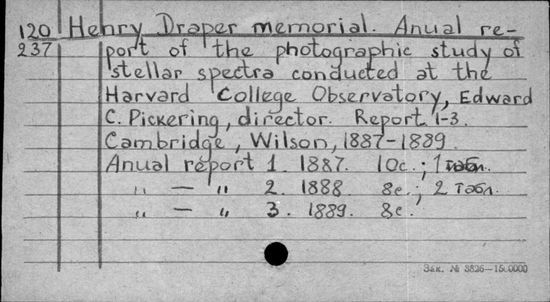 120 Henry Draper memorial. Anual re-
237 port of the photographic study of
stellar spectra conducted at the
Harvard College Observatory, Edward
C. Pickering, director. Report 1-3.
Cambridge, Wilson, 1887-1889.
Anual report 1. 1887. 10с.; 1 табл.
" — " 2. 1888 8с.; 2 табл.
" — " 3. 1889. 8с.
Зак. № 3826—150000